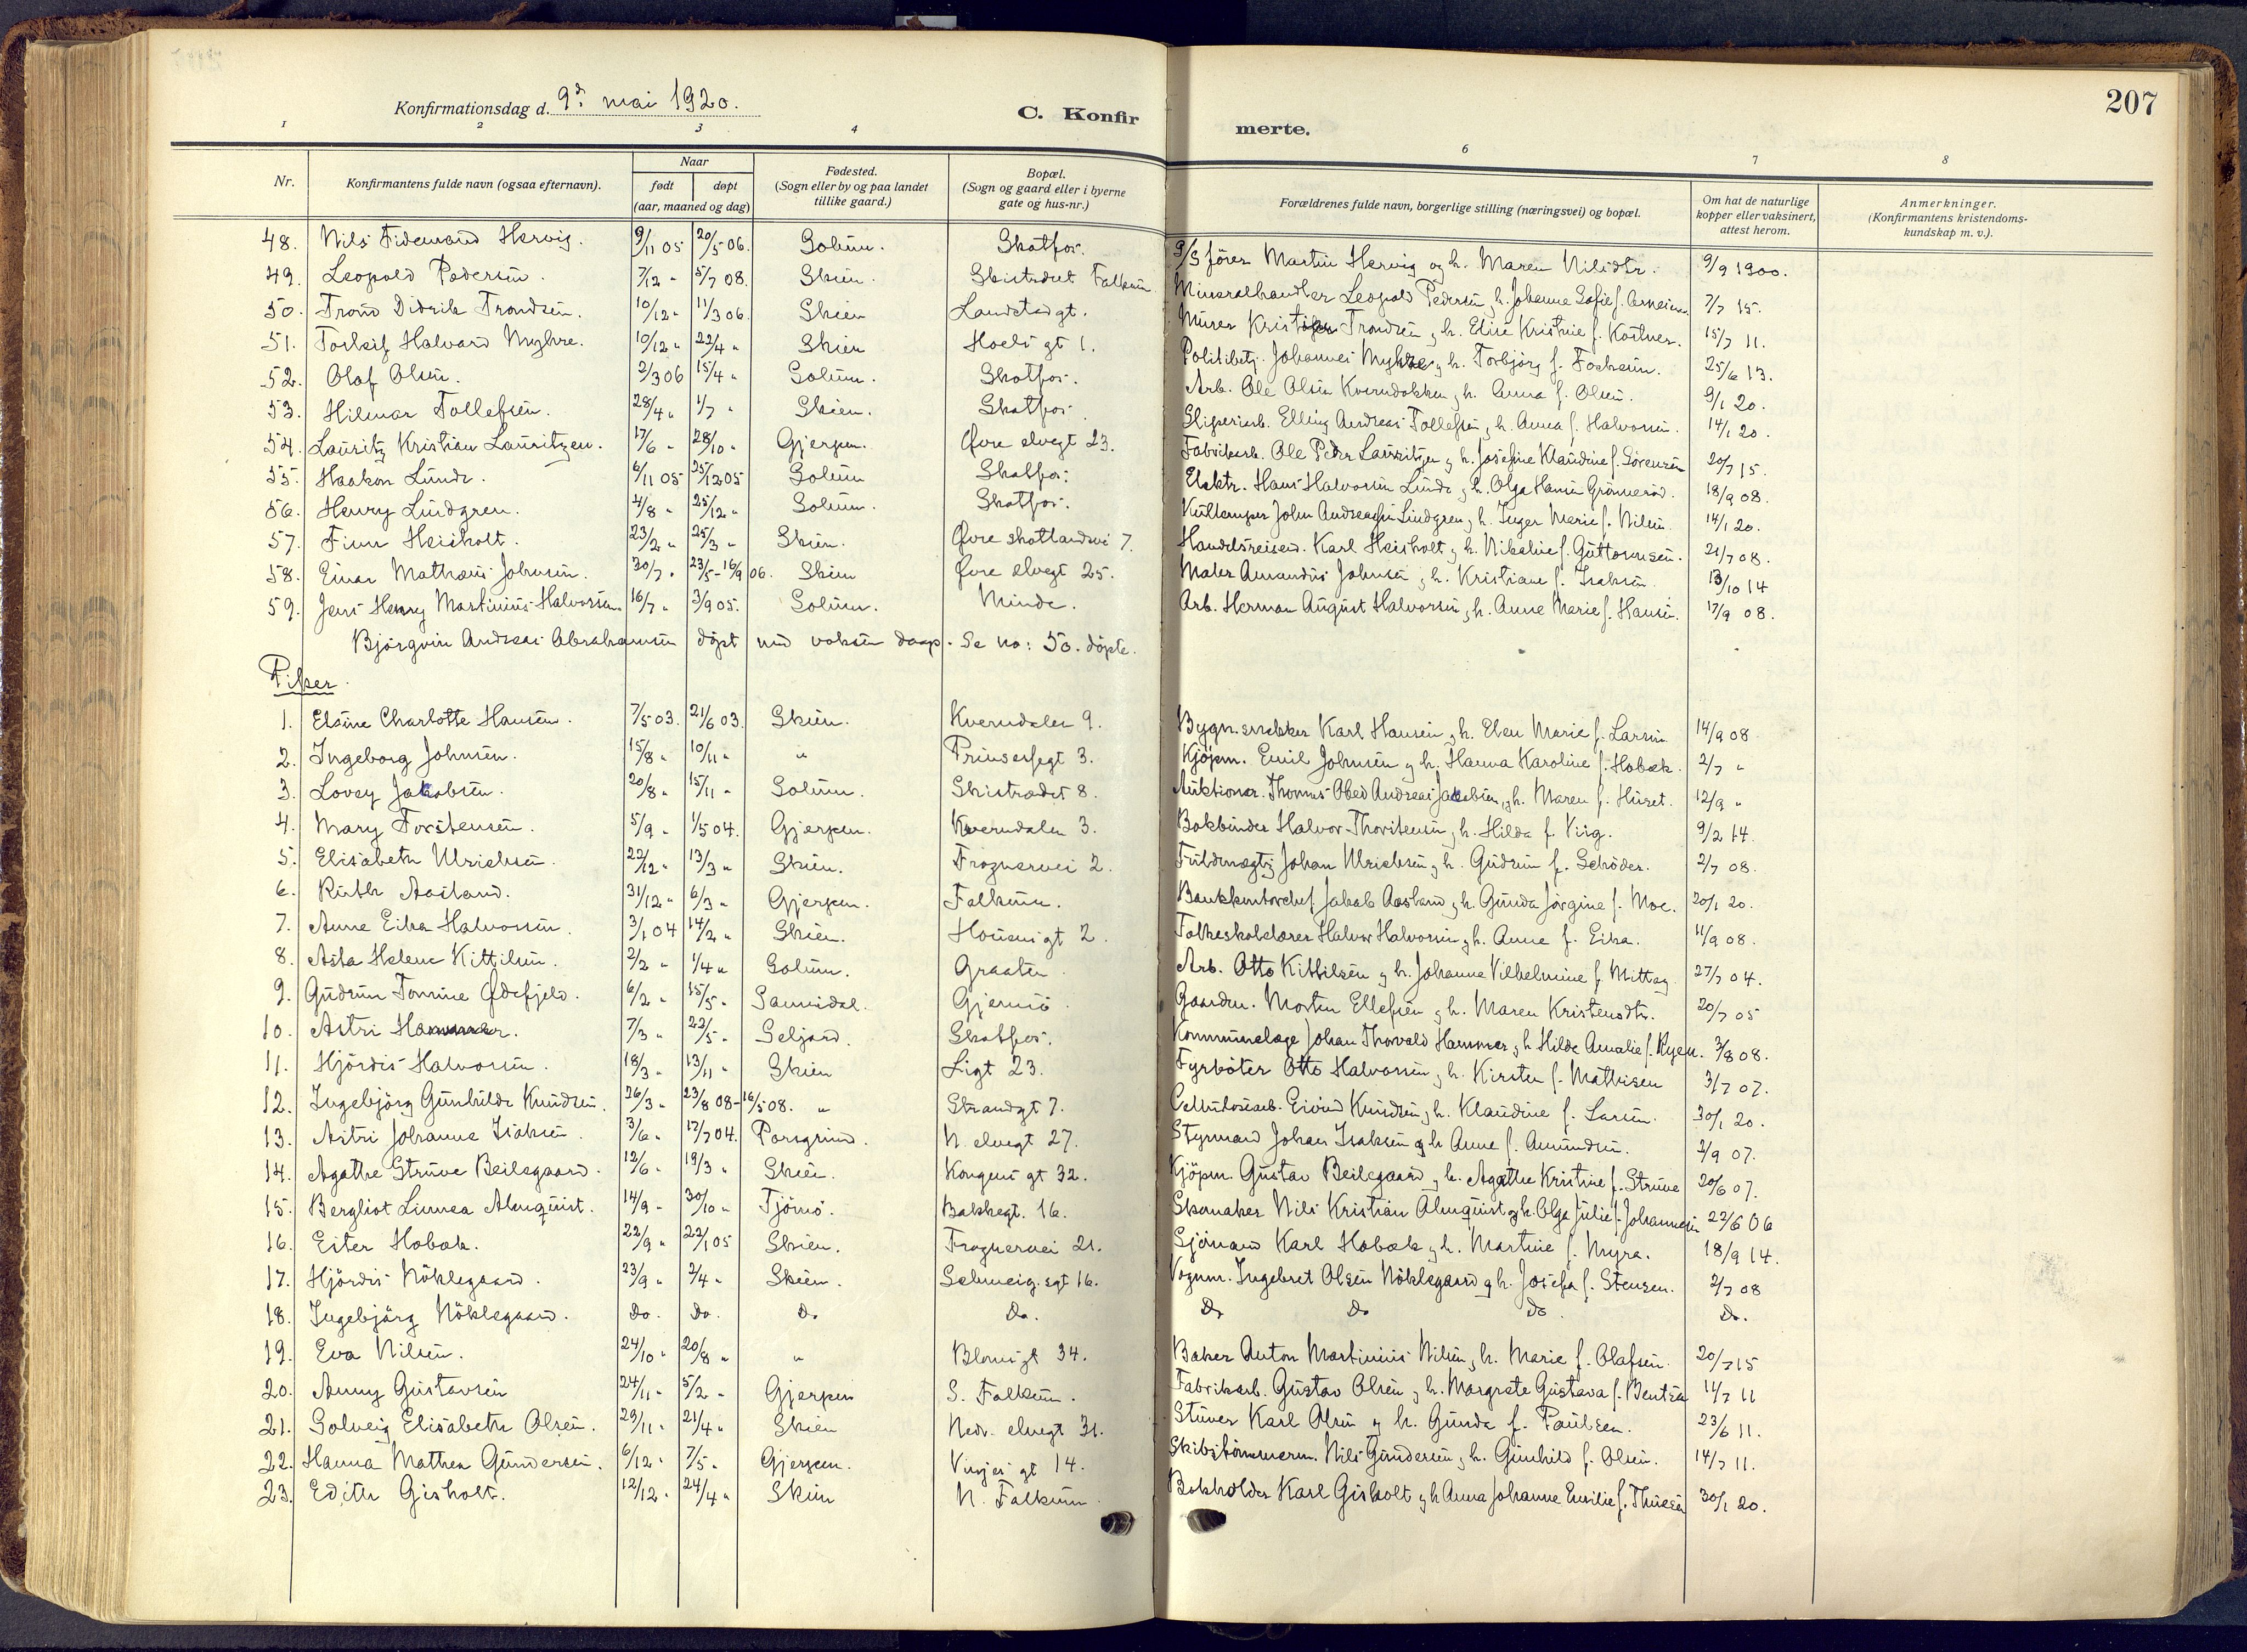 207
Konfirmationsdag d. 9d. mai 1920.
C. Konfirmerte.
1 2 3 4 6 7 8
Nr. Konfirmantens fulde navn (ogsaa efternavn). Naar født døpt (aar, maaned og dag) Fødested. (Sogn eller by og paa landet tillike gaard.) Bopæl. (Sogn og gaard eller i byerne gate og hus-nr.) Forældrenes fulde navn, borgerlige stilling (næringsvei) og bopæl. Om hat de naturlige kopper eller vaksinert, attest herom. Anmerkninger. (Konfirmantens kristendomskundskap m. v.).
48. Nils Tidemand Hervig. 9/11 05 20/5 06. Solum. Skotfos. S/S fører Martin Hervig og h. Maren Nilsdtr. 9/9 1900.
49. Leopold Pedersen. 7/12 " 5/7 08. Skien. Skistrædet Falkum Mineralhandler Leopold Pedersen og h. Johanne Sofie f. 7/7 15.
50. Trond Didrik Trondsen. 10/12 " 11/3 06. Skien Landstadgt. Murer Trondsen og h. Elise Kristine f. Kastner. 15/7 11.
51. Torleif Halvard Myhre. 10/12 " 22/4 " Skien Hoels gt 1. Politibetj. Johannes Myhre og h. Torbjörg f. 25/6 13.
52. Olaf Olsen. 2/3 06 15/4 " Solum. Skotfos. Arb. Ole Olsen Kverndokken og h. Anna f. Olsen. 9/1 20.
53. Hilmar Tollefsen. 28/4 " 1/7 " Skien. Skotfos. Sliperiarb. Elling Andreas Tollefsen og h. Anna f. Halvorsen. 14/1 20.
54. Lauritz Kristian Lauritzen. 17/6 " 28/10 " Gjerpen. Øvre elvegt 23. Fabrikarb. Ole Peder Lauritzen og h. Josefine Klaudine f. Sörensen 20/7 15.
55. Haakon Lunde. 6/11 05 25/12 05 Solum Skotfos. Elektr. Hans Halvorsen Lunde og h. Olga Hansen Grönneröd. 18/9 08.
56. Henry Lindgren. 4/8 " 25/12 " Solum. Skotfos. John Andreassen Lindgren og h. Inger Marie f. Nilsen. 14/1 20.
57. Finn Heisholt. 23/2 " 25/3 " Skien. Øvre skotlandsvei 7. Handelsreisend. Karl Heisholt og h. Nikoline f. Guttormsen. 21/7 08.
58. Einar Mathæus Johnsen. 30/7 " 23/5 - 16/9 06. Skien Øvre elvegt 25. Maler Amandus Johnsen og h. Kristiane f. Isaksen. 13/10 14
59. Jens Henry Martinius Halvorsen 16/7 " 3/9 05. Solum. Minde. Arb. Herman August Halvorsen og h. Anne Marie f. Hansen. 17/9 08.
Björgvin Andreas Abrahamsen döpt ved voksen daap. Se no: 50. döpte.
Piker.
1. Elsine Charlotte Hansen. 7/5 03. 21/6 03. Skien. Kverndalen 9. Bygn.snekker Karl Hansen og h. Elen Marie f. Larsen 14/9 08
2. Ingeborg Johnsen. 15/8 " 10/11 " " Prinsensgt 3. Kjöpm. Emil Johnsen og h. Hanna Karoline f. Hobæk. 2/7 "
3. Lovey Jakobsen. 20/8 " 15/11 " Solum. Skistrædet 8. Auktionar. Thomas Obed Andreas Jakobsen og h. Maren f. Huset. 12/9 "
4. Mary Torstensen. 5/9 " 1/5 04. Gjerpen. Kverndalen 3. Bokbinder Halvor Thorstensen og h. Hilda f. Virg. 9/2 14.
5. Elisabeth Ulrichsen. 22/12 " 13/3 " Skien. Frognervei 2. Fuldmægtig Johan Ulrichsen og h. Gudrun f. Schöder. 2/7 08.
6. Ruth Aasland. 31/12 " 6/3 " Gjerpen. Falkum. Bankkontorchef Jakob Aasland og h. Gunda Jörgine f. Moe. 20/1 20.
7. Anne Eika Halvorsen. 3/1 04 14/2 " Skien. gt 2. Folkeskolelærer Halvor Halvorsen og h. Anne f. Eika. 11/9 08.
8. Asta Helene Kittilsen. 2/2 " 1/4 " Solum. Graaten. Arb. Otto Kittilsen og h. Johanne Vilhelmine f. Mittag. 27/7 04.
9. Gudrun Tomine Ødefjeld. 6/2 " 15/5 " Sannidal. Gjemsö. Gaardm. Morten Ellefsen og h. Maren Kristensdtr. 20/7 05
10. Astri Hammer. 7/3 " 22/5 " Seljord. Skotfos. Kommunelæge Johan Thorvald Hammer og h Hilda Amalie f. Ryen. 3/8 08.
11. Hjördis Halvorsen. 18/3 " 13/11 " Skien Ligt 23. Fyrböter Otto Halvorsen og h. Kirsten f. Mathisen 3/7 07.
12. Ingebjörg Gunhilde Knudsen. 26/3 " 23/8 08 - 16/5 08. " Strandgt 7. Cellulosearb. Eivind Knudsen og h. Klaudine f. Larsen. 30/1 20.
13. Astri Johanne Isaksen. 3/6 " 17/7 04. Porsgrund. N. elvegt 27. Styrmand Johan Isaksen og h Anne f. Amundsen. 2/9 07.
14. Agathe Struve Beilegaard. 12/6 " 19/3 " Skien. Kongens gt 32. Kjöpm. Gustav Beilegaard og h. Agathe Kristine f. Struve 20/6 07.
15. Bergliot Linnea Almquist. 14/9 " 30/10 " Tjömö. Bakkegt. 16. Skomaker Nils Kristian Almquist og h. Olga Julie f. Johannesen 22/6 06
16. Ester Hobæk. 22/9 " 22/1 05 Skien. Frognervei 21. Sjömand Karl Hobæk og h. Martine f. Myra. 18/9 14.
17. Hjördis Nöklegaard. 23/9 " 2/4 " Skien. Schweig.sgt 16. Vognm. Ingebret Olsen Nöklegaard og h. Josefa f. Stensen. 2/7 08
18. Ingebjörg Nöklegaard. Do. Do. Do Do. Do Do Do. Do.
19. Eva Nilsen. 24/10 " 20/8 " " Blomsgt 34. Baker Anton Martinius Nilsen og h. Marie f. Olafsen. 20/7 15
20. Anny Gustavsen 24/11 " 5/2 " Gjerpen S. Falkum. Fabrikarb. Gustav Olsen og h. Margrete Gustava f. Bentsen 11/7 11
21. Solveig Elisabeth Olsen. 29/11 " 21/4 " Skien Nedr. elvegt 31. Stuver Karl Olsen og h. Gunda f. Paulsen. 23/6 11.
22. Hanna Mathea Gundersen. 6/12 " 7/5 " Gjerpen. Vinjes gt 14. Skibstömmerm. Nils Gundersen og h. Gunhild f. Olsen. 14/7 11.
23. Edith Gisholt. 12/12 " 24/4 " Skien N. Falkum Bokholder Karl Gisholt og h Anna Johanne Emilie f. Thuesen 30/1 20.